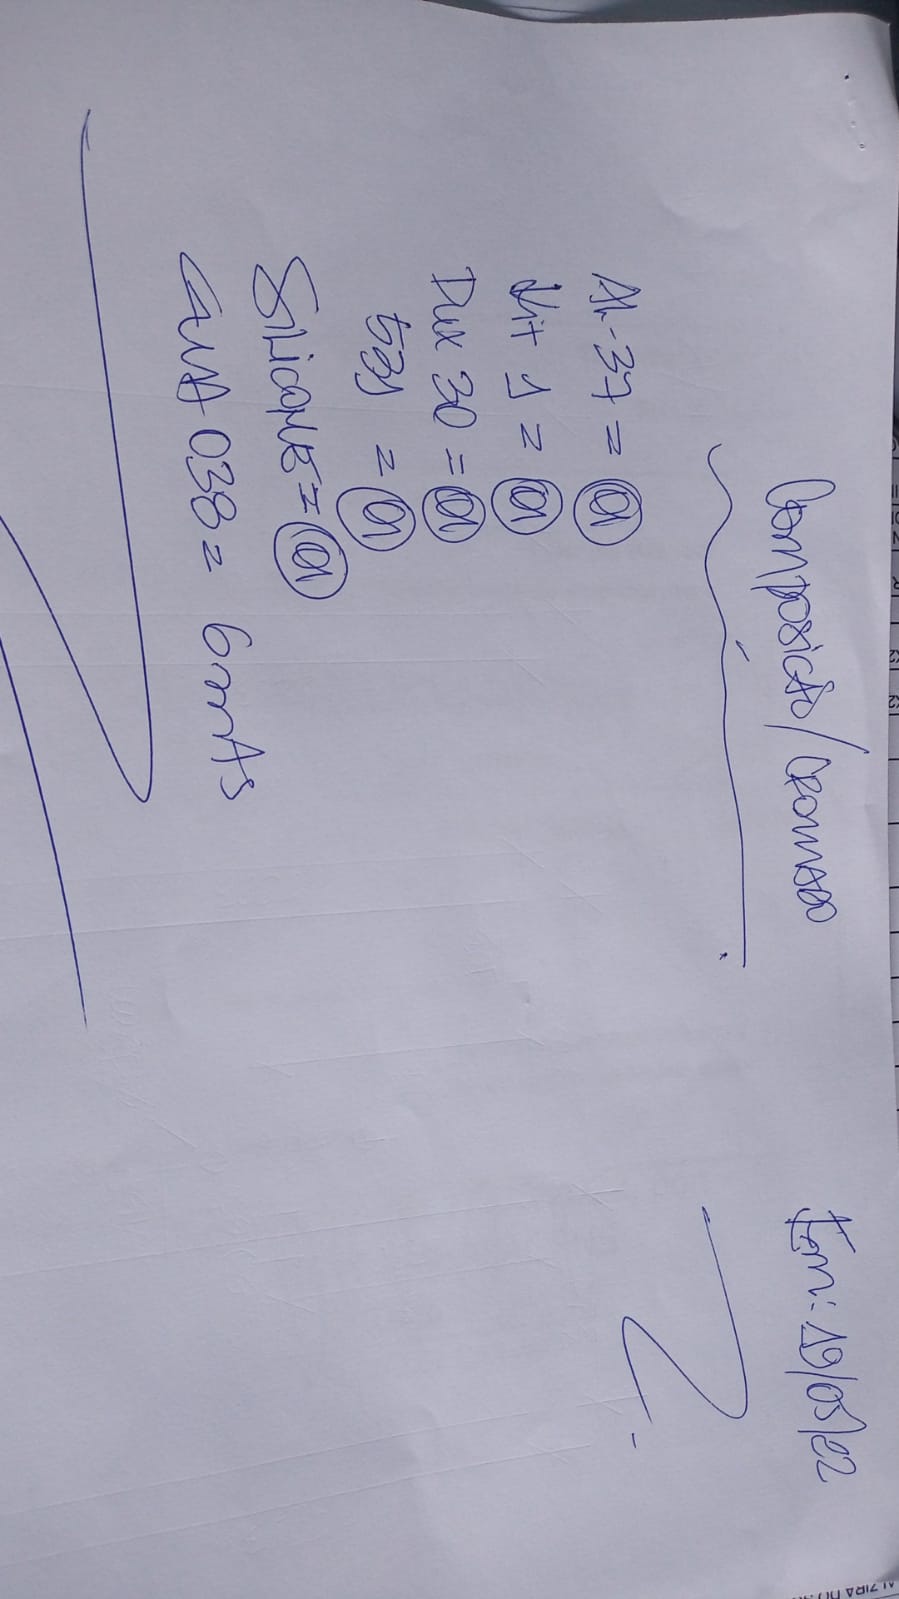 Composição/Cromado Em: 19/05/22
AL-37 = 01
Kit 1 = 01
Dux 30 = 01
531 = 01
Silicone = 01
038 = 6mmts